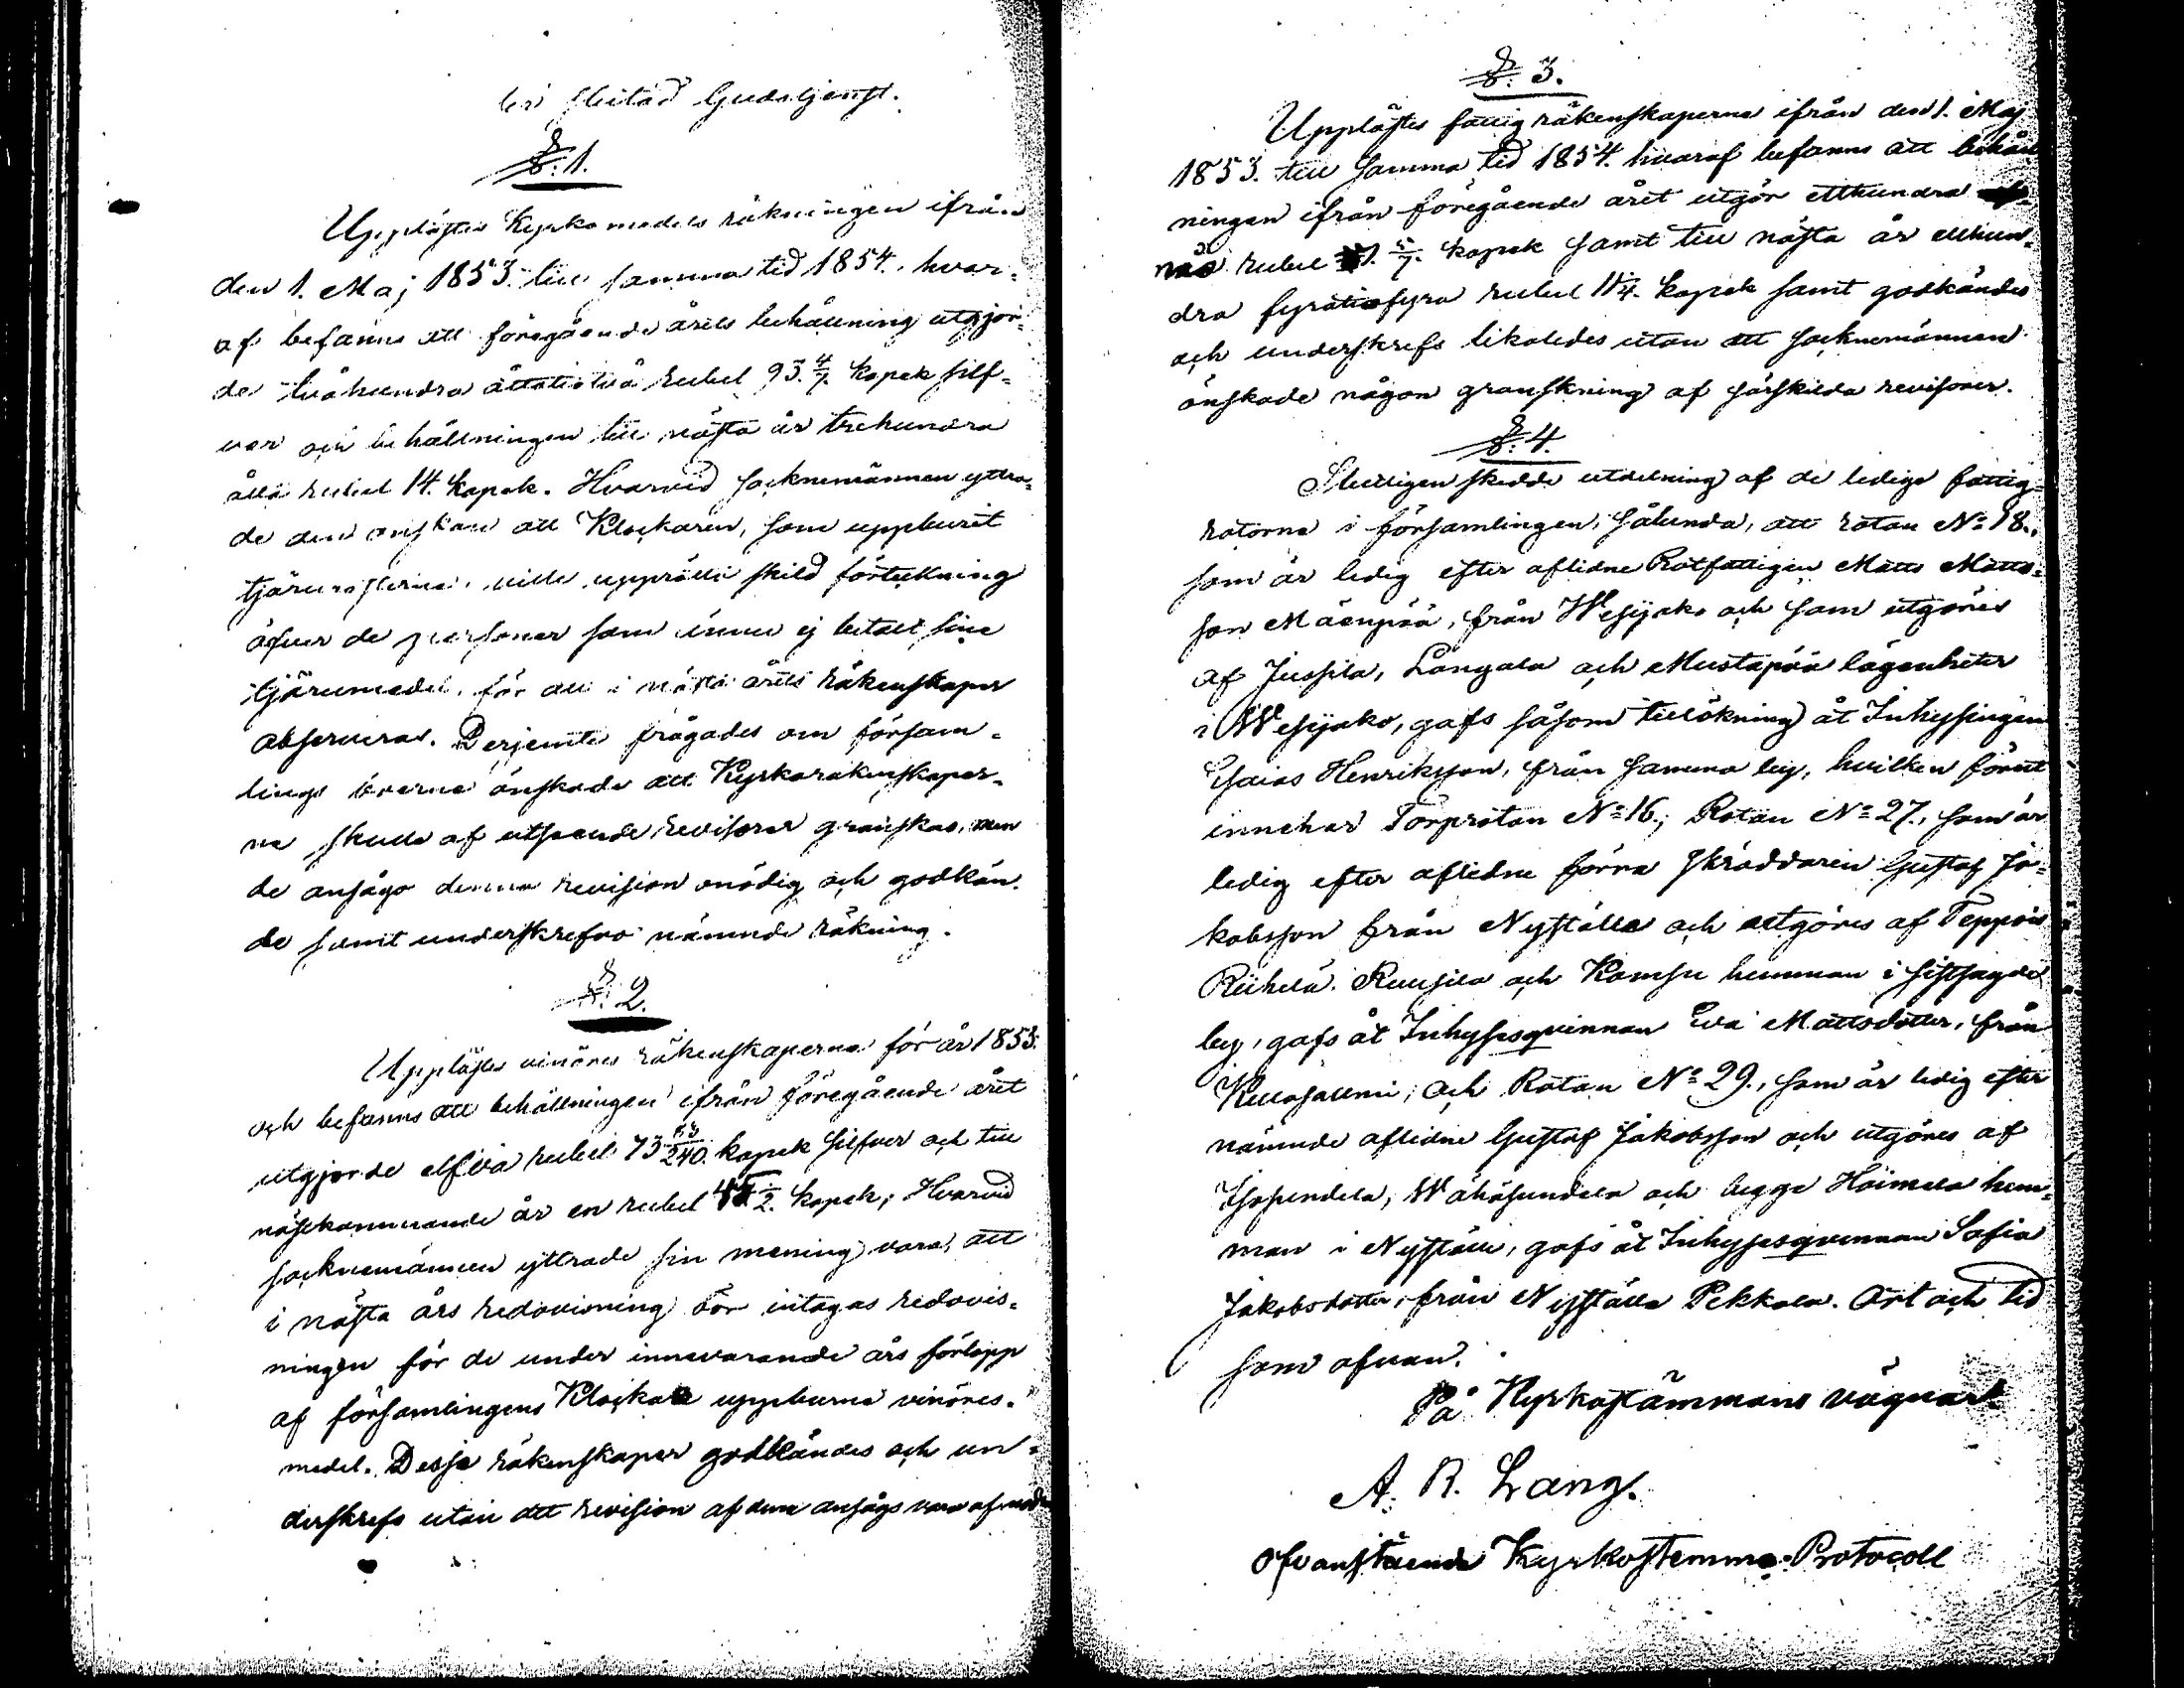 slutad Gudstjenst.
§. 1.
Upplästes Kyrkomedels räkningen ifrån
den 1. Maj 1853. till samma tid 1854., hvar-
af befanns att föregående årets behållning utgjor-
de tvåhundra åttatiotvå rubel 93. 4/7. kopek silf-
ver och behållningen till nästa år trehundra
åtta rubel 14. kopek. Hvarvid socknemännen yttra-
de den önskan att Klockaren, som uppburit
ville upprätta skild förteckning
öfver de personer som ännu ej betalt sine
tjärumedel, för att i nästa årets räkenskaper
observeras. Derjemte frågades om försam-
lings önskade att Kyrkoräkenskaper-
na skulle af utseende revisorer granskas, men
de ansågo denna revision onödig och godkän-
de samt underskrefvo nämnde räkning.
§. 2.
Upplästes vinöres räkenskaperna för år 1853.
och befanns att behållningen ifrån föregående året
utgjorde elfva rubel 73 /240. kopek silfver och till
nästkommande år en rubel 1/2. kopek; Hvarvid
socknemännen yttrade sin mening vara, att
i nästa års redovisning bör intagas redovis-
ningen för de under innevarande års förlopp
af församlingens Klockare uppburna vinöres-
medel. Dessa räkenskaper godkändes och un-
derskrefs utan att revision af dem ansågs vara af nöden
§. 3.
Upplästes fattig räkenskaperna ifrån den 1. Maj
1853. till samma tid 1854. hvaraf befanns att behåll
ningen ifrån föregående året utgör etthundra
rubel 5/7. kopek samt till nästa år etthun-
dra fyratiofyra rubel 11 1/4. kopek samt godkändes
och underskrefs likaledes utan att socknemännen
önskade någon granskning af särskilda revisorer.
§. 4.
Slutligen skedde utdelning af de lediga fattig-
rotorna i församlingen, sålunda, att rotan N:o 18.,
som är ledig efter aflidne Rotfattigen Matts Matts-
son Mäenpää, från Wesijako och som utgöres
af Jussila, Långala och Mustapää lägenheter
i Wesijako, gafs såsom tillökning åt Inhysingen
Esaias Henriksson, från samma by, hvilken förut
innehar Torprotan N:o 16.; Rotan N:o 27., som är
ledig efter aflidne förra skräddaren Gustaf Ja-
kobsson från Nyställa och utgöres af Teppois
Riihelä. Ruusila och Kamsu hemman i sistsagde
by, gafs åt Inhysesqvinnan Eva Mattsdotter, från
Kullasalmi; och Rotan N:o 29., som är ledig efter
nämnde aflidne Gustaf Jakobsson och utgöres af
Isosundela, Wähäsundela och begge Höimela hem-
man i Nyställe, gafs åt Inhysesqvinnan Sofia
Jakobsdotter, från Nyställa Pekkala. Ort och tid
som ofvan.
På Kyrkostämmans vägnar:
A. R. Lang.
Ofvanstående Kyrkostemma-Protocoll